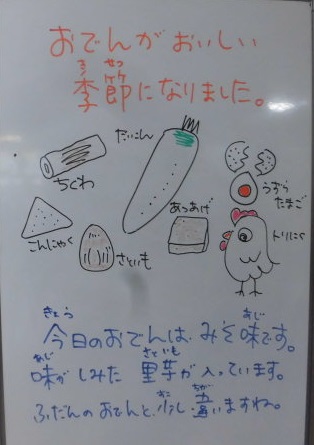 おでんがおいしい
季節になりました。
だいこん
ちくわ
うずら
たまご
あつあげ
こんにゃく
さといも
トリにく
今日のおでんは、みそ味です。
味がしみた里芋が入っています。
ふだんのおでんと、少し違いますね。